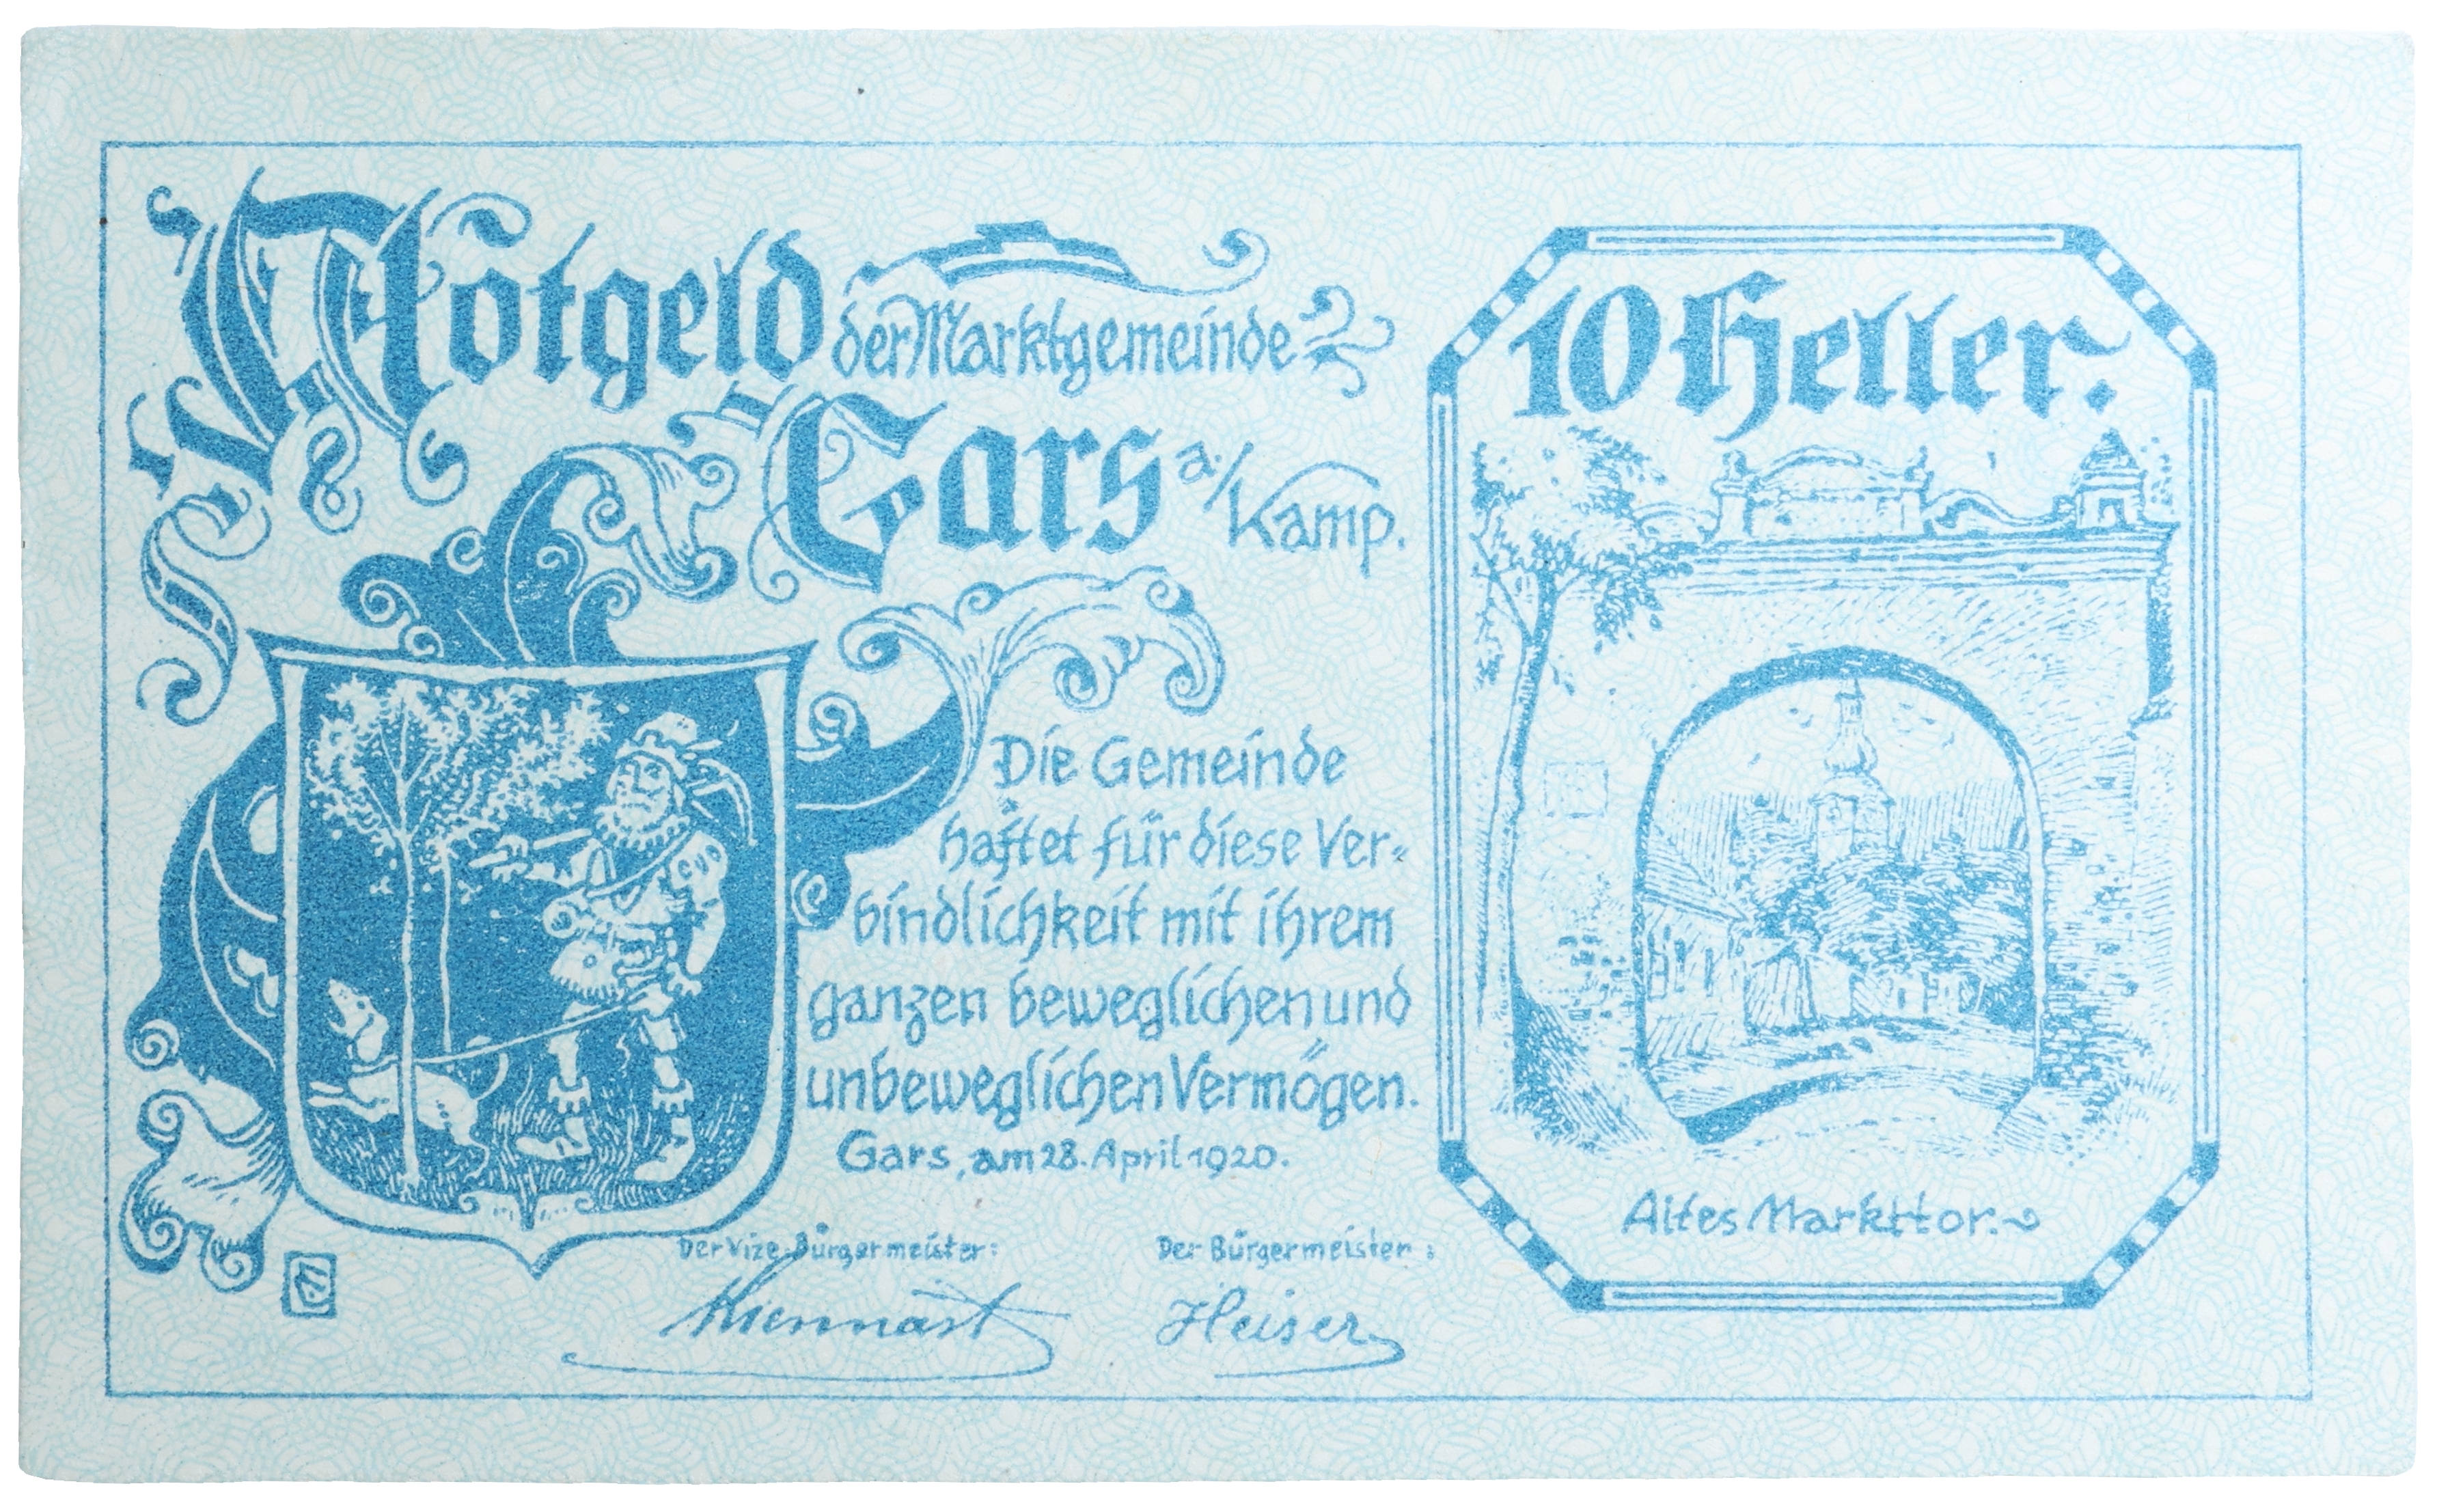 Notgeld der Marktgemeinde
Gars a./Kamp.
Die Gemeinde
haftet für diese Ver-
bindlichkeit mit ihrem
ganzen beweglichen und
unbeweglichen Vermögen.
Gars, am 28. April 1920.
Der Vize-Bürgermeister:
Kiennast
Der Bürgermeister:
Heiser
10 Heller.
Altes Markttor.